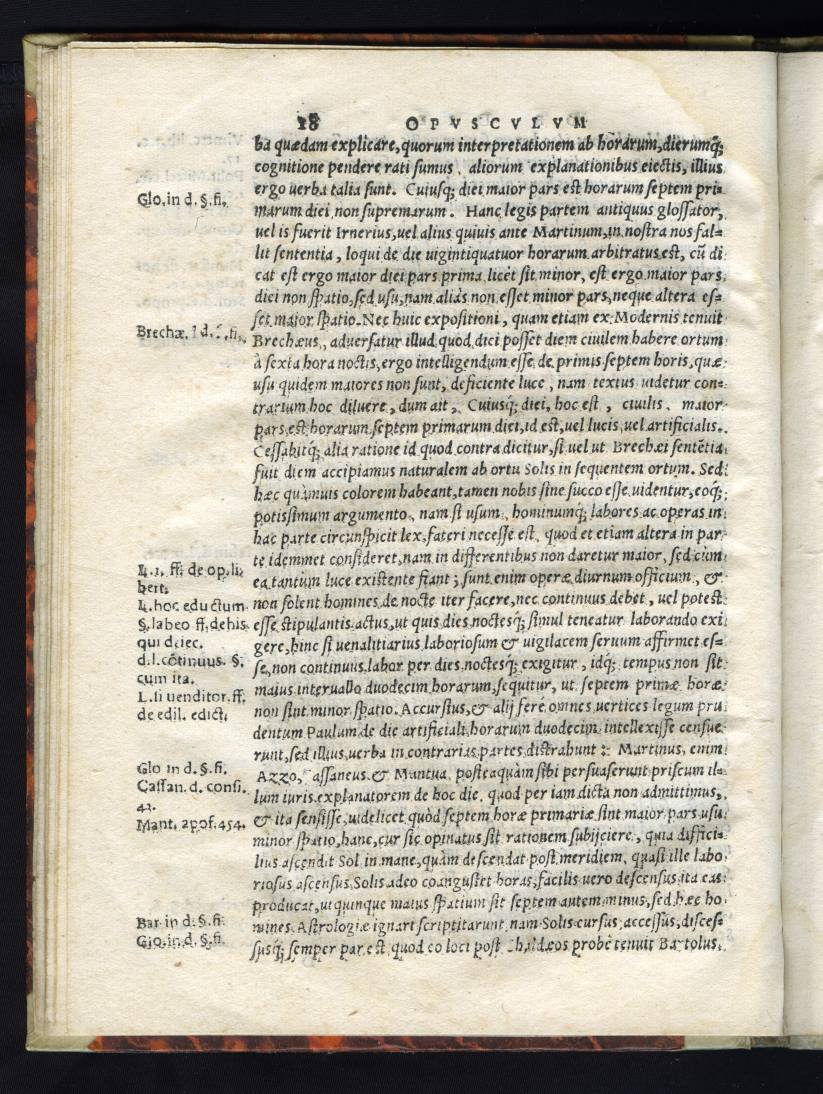 28 OPVSCVLVM
ba quædam explicare, quorum interpretationem ab horarum, dierumq́;
cognitione pendere rati sumus, aliorum explanationibus eiectis, illius
ergo uerba talia sunt. Cuiusq́; diei maior pars est horarum septem pri-
Glo. in d. §. fi.
marum diei non supremarum. Hanc legis partem antiquus glossator,
uel is fuerit Irnerius, uel alius quiuis ante Martinum, in nostra nos fal-
lit sententia, loqui de die uigintiquatuor horarum arbitratus est, cū di
cat est ergo maior diei pars prima licèt sit minor, est ergo maior pars
diei non spatio, sed usu, nam aliàs non esset minor pars, neque altera es-
set maior spatio. Nec huic expositioni, quam etiam ex Modernis tenuit
Brechæ. d. §. fi.
Brechæus, aduersatur illud quod dici posset diem ciuilem habere ortum
à sexta hora noctis, ergo intelligendum esse de primis septem horis, quæ
usu quidem maiores non sunt, deficiente luce, nam textus uidetur con-
trarium hoc diluere, dum ait, Cuiusq́; diei, hoc est, ciuilis. maior
pars est horarum septem primarum diei, id est, uel lucis, uel artificialis.
Cessabitq́; alia ratione id quod contra dicitur, si uel ut Brechæi sentētia
fuit diem accipiamus naturalem ab ortu Solis in sequentem ortum. Sed
hæc quàmuis colorem habeant, tamen nobis sine succo esse uidentur, eoq́;
potissimum argumento, nam si usum, hominumq́; labores ac operas in
hac parte circunspicit lex, fateri necesse est, quod et etiam altera in par
te idemmet consideret, nam in differentibus non daretur maior, sed cùm
L. 1. ff. de op. li
ea tantùm luce existente fiant; sunt enim operæ diurnum officium, &
bert.
L. hoc edu ctum
non solent homines de nocte iter facere, nec continuus debet, uel potest
§. labeo ff. de his
esse stipulantis actus, ut quis dies noctesq́; simul teneatur laborando exi
qui deiec.
gere, hinc si uenalitiarius laboriosum & uigilacem seruum affirmet es-
d. l. cōtinuus. §.
se, non continuus labor per dies noctesq́; exigitur, idq́; tempus non sit
cum ita.
maius interuallo duodecim horarum, sequitur, ut septem primæ horæ
L. si uenditor. ff.
de edil. edict.
non sint minor spatio. Accursius, & alij ferè omnes uertices legum pru
dentum Paulum de die artificiali horarum duodecim intellexisse censue
runt, sed illius uerba in contrarias partes distrahunt: Martinus, enim
Glo in d. §. fi.
Azzo, assaneus & Mantua, posteaquàm sibi persuaserunt priscum il-
Cassan. d. consi.
lum iuris explanatorem de hoc die, quod per iam dicta non admittimus,
42.
Mant. apof. 454.
& ita sensisse, uidelicet quòd septem horæ primariæ sint maior pars usu
minor spatio, hanc, cur sic opinatus sit rationem subijciere, quia diffici-
lius ascendit Sol in mane, quàm descendat post meridiem, quasi ille labo
riosus ascensus Solis adeo coangustet horas, facilis uero descensus ita eas
producat, ut quinque maius spatium sit septem autem minus, sed hæc ho
Bar. in d. §. fi.
mines Astrologiæ ignari scriptitarunt, nam Solis cursus accessus, disces-
Gio. in. d. §. fi.
susq́; semper par est, quod eo loci post haldæos probè tenuit Bartolus,